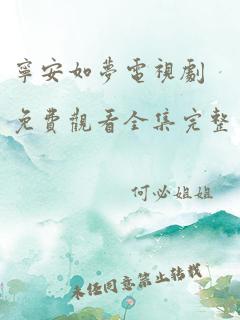 寧安如夢電視劇
免費觀看全集完整
何必姐姐
未经同意禁止转载